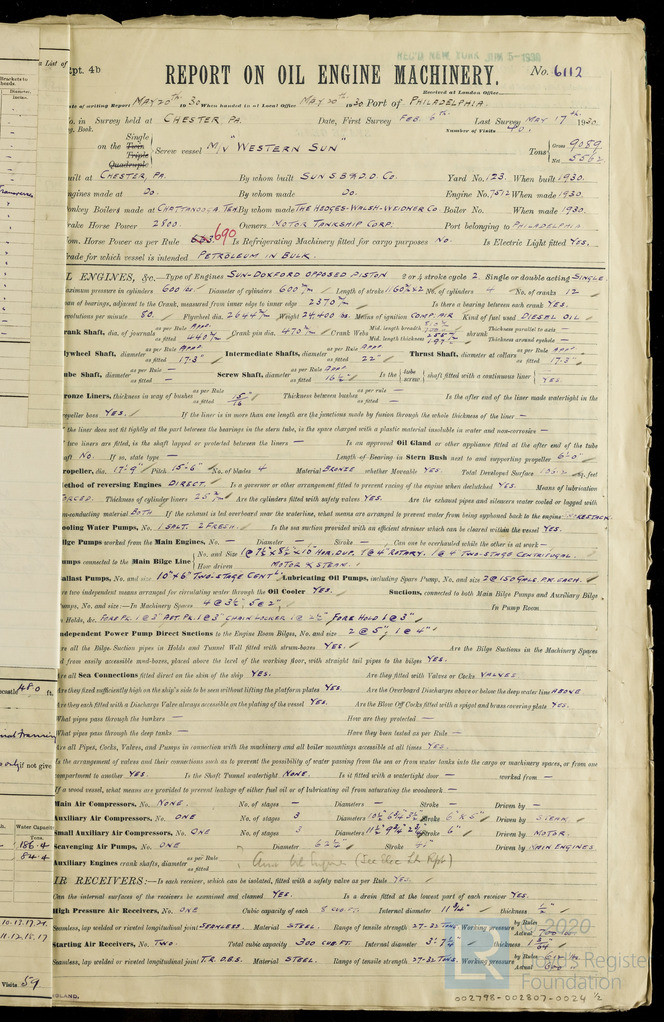 REC'D NEW YORK JUN 5-1930
Rpt. 4b
REPORT ON OIL ENGINE MACHINERY.
No. 6112
Received at London Office
Date of writing Report MAY 20th 1930 When handed in at Local Office MAY 20th 1930 Port of PHILADELPHIA.
No. in Survey held at CHESTER PA. Date, First Survey FEB. 6th. Last Survey MAY 17th 1930.
Reg. Book. Number of Visits 40.
on the Single Twin Triple Quadruple Screw vessel M/V "WESTERN SUN" Tons Gross 9089 Net 5562
Built at CHESTER, PA. By whom built SUN S.B. & D.D. CO. Yard No. 123. When built 1930.
Engines made at DO. By whom made DO. Engine No. 7512 When made 1930.
Donkey Boilers made at CHATTANOOGA, TEN. By whom made THE HEDGES-WALSH-WEIDNER CO Boiler No. When made 1930.
Brake Horse Power 2800. Owners MOTOR TANKSHIP CORP. Port belonging to PHILADELPHIA
Nom. Horse Power as per Rule 690 Is Refrigerating Machinery fitted for cargo purposes NO. Is Electric Light fitted YES.
Trade for which vessel is intended PETROLEUM IN BULK.
OIL ENGINES, &c. Type of Engines SUN-DOXFORD OPPOSED PISTON 2 or 4 stroke cycle 2 Single or double acting SINGLE
Maximum pressure in cylinders 600 lbs Diameter of cylinders 600 m/m Length of stroke 1160 m/m x2 No. of cylinders 4 No. of cranks 12
Span of bearings, adjacent to the Crank, measured from inner edge to inner edge 2370 m/m Is there a bearing between each crank YES.
Revolutions per minute 80. Flywheel dia. 2644 m/m Weight 24,400 lbs. Means of ignition COMP. AIR Kind of fuel used DIESEL OIL
Crank Shaft, dia. of journals as per Rule APPD. as fitted 440 m/m Crank pin dia. 470 m/m Crank Webs Mid. length breadth Mid. length thickness shrunk Thickness parallel to axis — Thickness around eyehole —
Flywheel Shaft, diameter as per Rule APPD as fitted 17.3" Intermediate Shafts, diameter as per Rule APPD as fitted 22" Thrust Shaft, diameter at collars as per Rule APPD as fitted 17.3"
Tube Shaft, diameter as per Rule — as fitted — Screw Shaft, diameter as per Rule APPD as fitted 16½" Is the tube screw shaft fitted with a continuous liner YES
Bronze Liners, thickness in way of bushes as per Rule as fitted 15/16 Thickness between bushes as per rule — as fitted — Is the after end of the liner made watertight in the
propeller boss YES. If the liner is in more than one length are the junctions made by fusion through the whole thickness of the liner —
If the liner does not fit tightly at the part between the bearings in the stern tube, is the space charged with a plastic material insoluble in water and non-corrosive —
If two liners are fitted, is the shaft lapped or protected between the liners — Is an approved Oil Gland or other appliance fitted at the after end of the tube
shaft NO. If so, state type — Length of Bearing in Stern Bush next to and supporting propeller 6'-0"
Propeller, dia. 17'-9" Pitch 15'-6" No. of blades 4 Material BRONZE whether Moveable YES. Total Developed Surface sq. feet
Method of reversing Engines DIRECT. Is a governor or other arrangement fitted to prevent racing of the engine when declutched YES. Means of lubrication
FORCED. Thickness of cylinder liners 25 m/m Are the cylinders fitted with safety valves YES. Are the exhaust pipes and silencers water cooled or lagged with
non-conducting material BOTH If the exhaust is led overboard near the waterline, what means are arranged to prevent water from being syphoned back to the engine SMOKESTACK
Cooling Water Pumps, No. 1 SALT. 2 FRESH. Is the sea suction provided with an efficient strainer which can be cleared within the vessel YES.
Bilge Pumps worked from the Main Engines, No. — Diameter — Stroke — Can one be overhauled while the other is at work —
Pumps connected to the Main Bilge Line No. and Size 1@7½"x8½"x10" HOR. DUP. 1@4" ROTARY. 1@4" TWO-STAGE CENTRIFUGAL. How driven MOTOR & STEAM.
Ballast Pumps, No. and size 10"x6" TWO-STAGE CENTL. Lubricating Oil Pumps, including Spare Pump, No. and size 2@150 GALS P.M. EACH.
Are two independent means arranged for circulating water through the Oil Cooler YES. Suctions, connected to both Main Bilge Pumps and Auxiliary Bilge
Pumps, No. and size:—In Machinery Spaces 4@3½"; 5@2" In Pump Room.
In Holds, &c. FORE PK. 1@3" AFT. PK. 1@3" CHAIN LOCKER 1@2½" FORE HOLD 1@3"
Independent Power Pump Direct Suctions to the Engine Room Bilges, No. and size 2@5"; 1@4"
Are all the Bilge Suction pipes in Holds and Tunnel Well fitted with strum-boxes YES. Are the Bilge Suctions in the Machinery Spaces
led from easily accessible mud-boxes, placed above the level of the working floor, with straight tail pipes to the bilges YES.
Are all Sea Connections fitted direct on the skin of the ship YES. Are they fitted with Valves or Cocks VALVES.
Are they fixed sufficiently high on the ship's side to be seen without lifting the platform plates YES. Are the Overboard Discharges above or below the deep water line ABOVE
Are they each fitted with a Discharge Valve always accessible on the plating of the vessel YES. Are the Blow Off Cocks fitted with a spigot and brass covering plate YES.
What pipes pass through the bunkers — How are they protected —
What pipes pass through the deep tanks — Have they been tested as per Rule —
Are all Pipes, Cocks, Valves, and Pumps in connection with the machinery and all boiler mountings accessible at all times YES.
Is the arrangement of valves and their connections such as to prevent the possibility of water passing from the sea or from water tanks into the cargo or machinery spaces, or from one
compartment to another YES. Is the Shaft Tunnel watertight NONE. Is it fitted with a watertight door — worked from —
If a wood vessel, what means are provided to prevent leakage of either fuel oil or of lubricating oil from saturating the woodwork —
Main Air Compressors, No. NONE. No. of stages — Diameters — Stroke — Driven by —
Auxiliary Air Compressors, No. ONE No. of stages 3 Diameters Stroke Driven by STEAM
Small Auxiliary Air Compressors, No. ONE No. of stages 3 Diameters Stroke 6" Driven by MOTOR.
Scavenging Air Pumps, No. ONE Diameter 62½" Stroke Driven by MAIN ENGINES
Auxiliary Engines crank shafts, diameter as per Rule as fitted
AIR RECEIVERS:—Is each receiver, which can be isolated, fitted with a safety valve as per Rule YES.
Can the internal surfaces of the receivers be examined and cleaned YES. Is a drain fitted at the lowest part of each receiver YES.
High Pressure Air Receivers, No. ONE Cubic capacity of each 8 CUB. FT. Internal diameter 11¾" thickness ½"
Seamless, lap welded or riveted longitudinal joint SEAMLESS. Material STEEL. Range of tensile strength 27-32 TONS. Working pressure by Rules Actual
Starting Air Receivers, No. TWO. Total cubic capacity 300 CUB. FT. Internal diameter 3'7¼" thickness
Seamless, lap welded or riveted longitudinal joint T.R.D.B.S. Material STEEL. Range of tensile strength 27-32 TONS. Working pressure by Rules Actual
© 2020
Lloyd's Register
Foundation
002798-002807-0024 ½